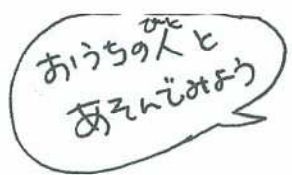 おうちの人と
あそんでみよう